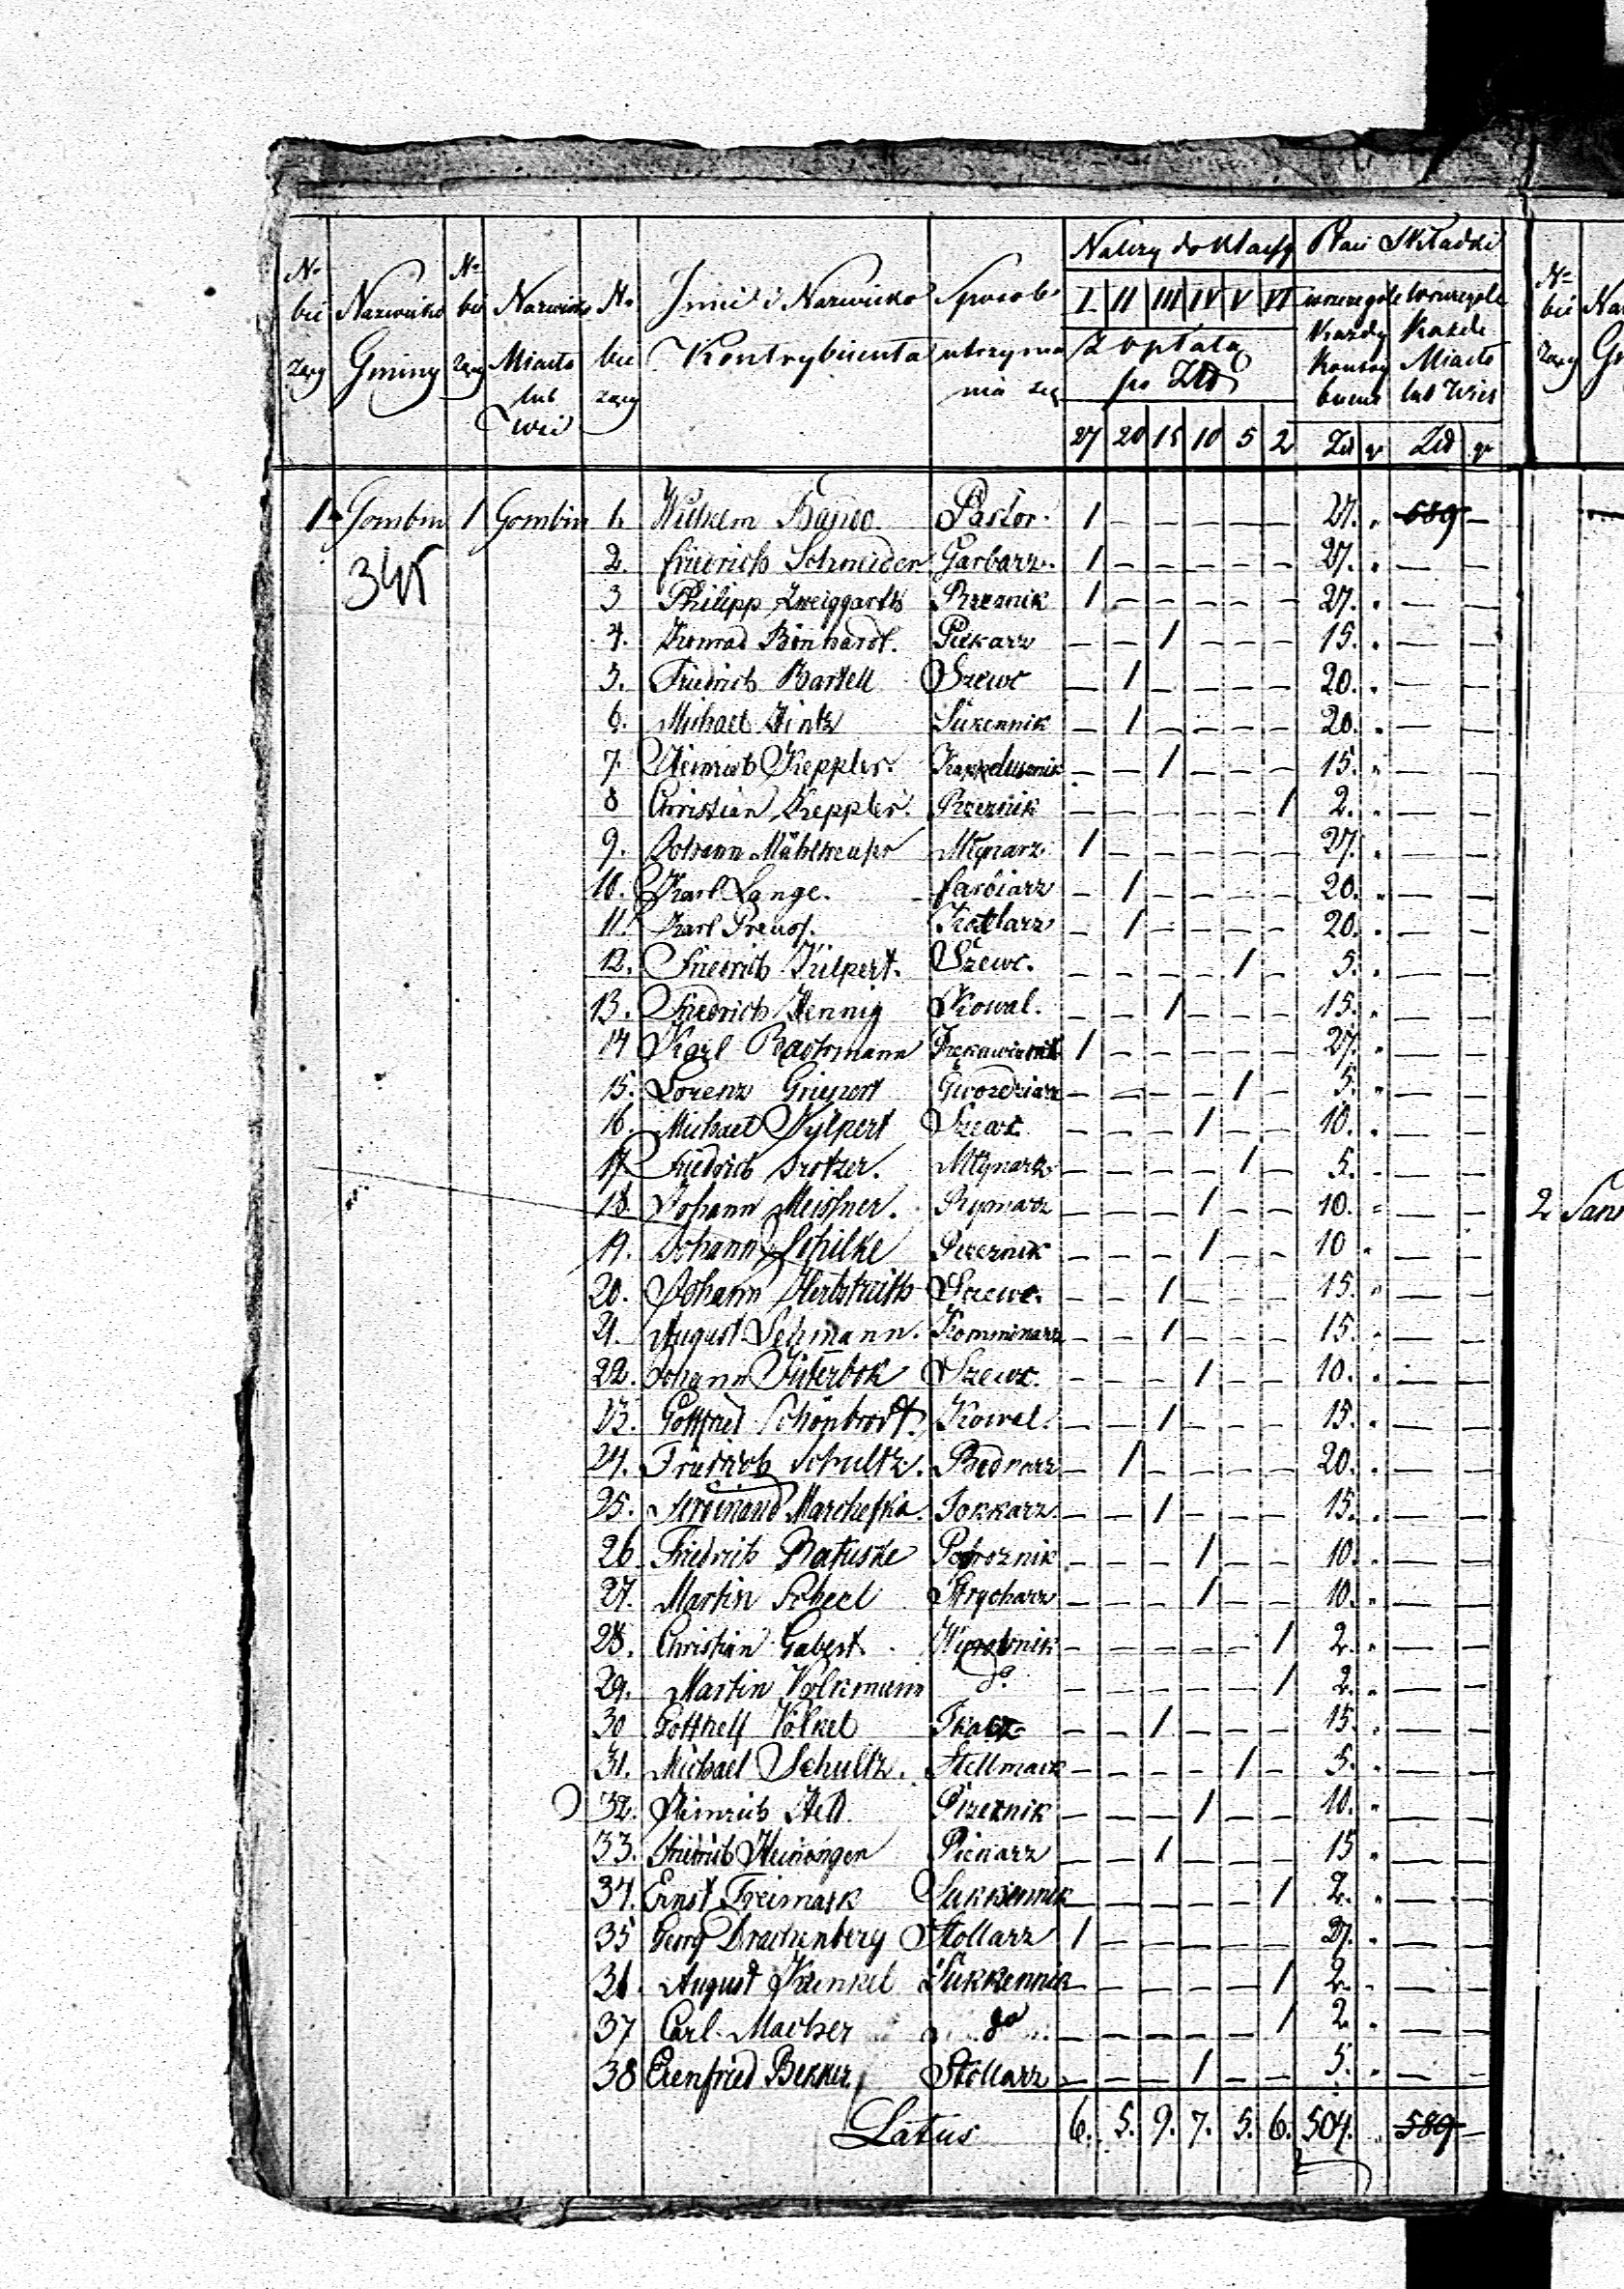 No bie zący | Nazwisko Gminy | No bie zący | Nazwisko Miasta lub Wsi | No bie zący | Imie i Nazwisko Kontrybuenta | Sposob utrzyma nia się | Należy do Klassy | Płaci Składki
I. II III IV V VI
z opłatą po Złł
wszczegole każdy Kontry buent | wszczegole Każde Miasto lub Wieś
27 20 15 10 5 2 Złł gr Złł gr
1 Gombin 1 Gombin 1. Wilhelm Pastor. 1 – – – – – 27. " 689 –
345
2. Friedrich Schneider Garbarz. 1 – – – – – 27. " – –
3 Philipp Zweiggardt Rzeznik 1 – – – – – 27. " – –
4. Konrad Bönhardt. Piekarz – – 1 – – – 15. " – –
5. Friedrich Bartell Szewc – 1 – – – – 20. " – –
6. Michael Hintz Sukennik – 1 – – – – 20. " – –
7. Heinrich Keppler. – – 1 – – – 15. " – –
8 Christian Keppler. Rzeznik – – – – – 1 2. " – –
9. Johann Młynarz. 1 – – – – – 27. " – –
10. Karl Lange. farbiarz – 1 – – – – 20. " – –
11. Karl Preuss. Kotlarz – 1 – – – – 20. " – –
12. Friedrich Hülpert. Szewc. – – – – 1 – 5. " – –
13. Friedrich Hennig Kowal. – – 1 – – – 15. " – –
14 Karl Bachmann 1 – – – – – 27. " – –
15. Lorenz Griepert Gwozdziarz – – – – 1 – 5. " – –
16. Michael Hylpert Szewc. – – – 1 – – 10. " – –
17 Friedrich Młynarz – – – – 1 – 5. – –
18. Johann Meissner. Rymarz – – – 1 – – 10. " – –
19. Johann Schilke – – – 1 – – 10 " – –
20. Johann Herbstreith Szewc. – – 1 – – – 15. " – –
21. August Lehmann. Komminarz – – 1 – – – 15. " – –
22. Johann Jüterbok Szewc. – – – 1 – – 10. " – –
23. Gottfried Schönbrodt. Kowal. – – 1 – – – 15. " – –
24. Friedrich Schultz. Bednarz – 1 – – – – 20. " – –
25. Ferdinand Marchefka. Tokkarz. – – 1 – – – 15. " – –
26 Friedrich Ratuske – – – 1 – – 10. " – –
27. Martin Scheel Strycharz – – – 1 – – 10. " – –
28. Christian Gabert. Wyrobnik – – – – – 1 2. " – –
29. Martin Volkmann do – – – – – 1 2. " – –
30 Gotthelf Völkel Tkacz – – 1 – – – 15. " – –
31. Michael Schultz. Stellmach – – – – 1 – 5. " – –
32. Heinrich Hell. – – – 1 – – 10. " – –
33. Friedrich Heininger Piekarz – – 1 – – – 15 " – –
34. Ernst Freimark Sukkennik – – – – – 1 2. " – –
35 Georg Drachenberg Stollarz 1 – – – – – 27. " – –
36. August Kunkel Sukkennik – – – – – 1 2. " – –
37 Carl Macher do – – – – – 1 2 " – –
38 Erenfried Bekker, Stollarz – – – 1 – – 5. " – –
Latus 6. 5. 9. 7. 5. 6. 504. " 589 –
2